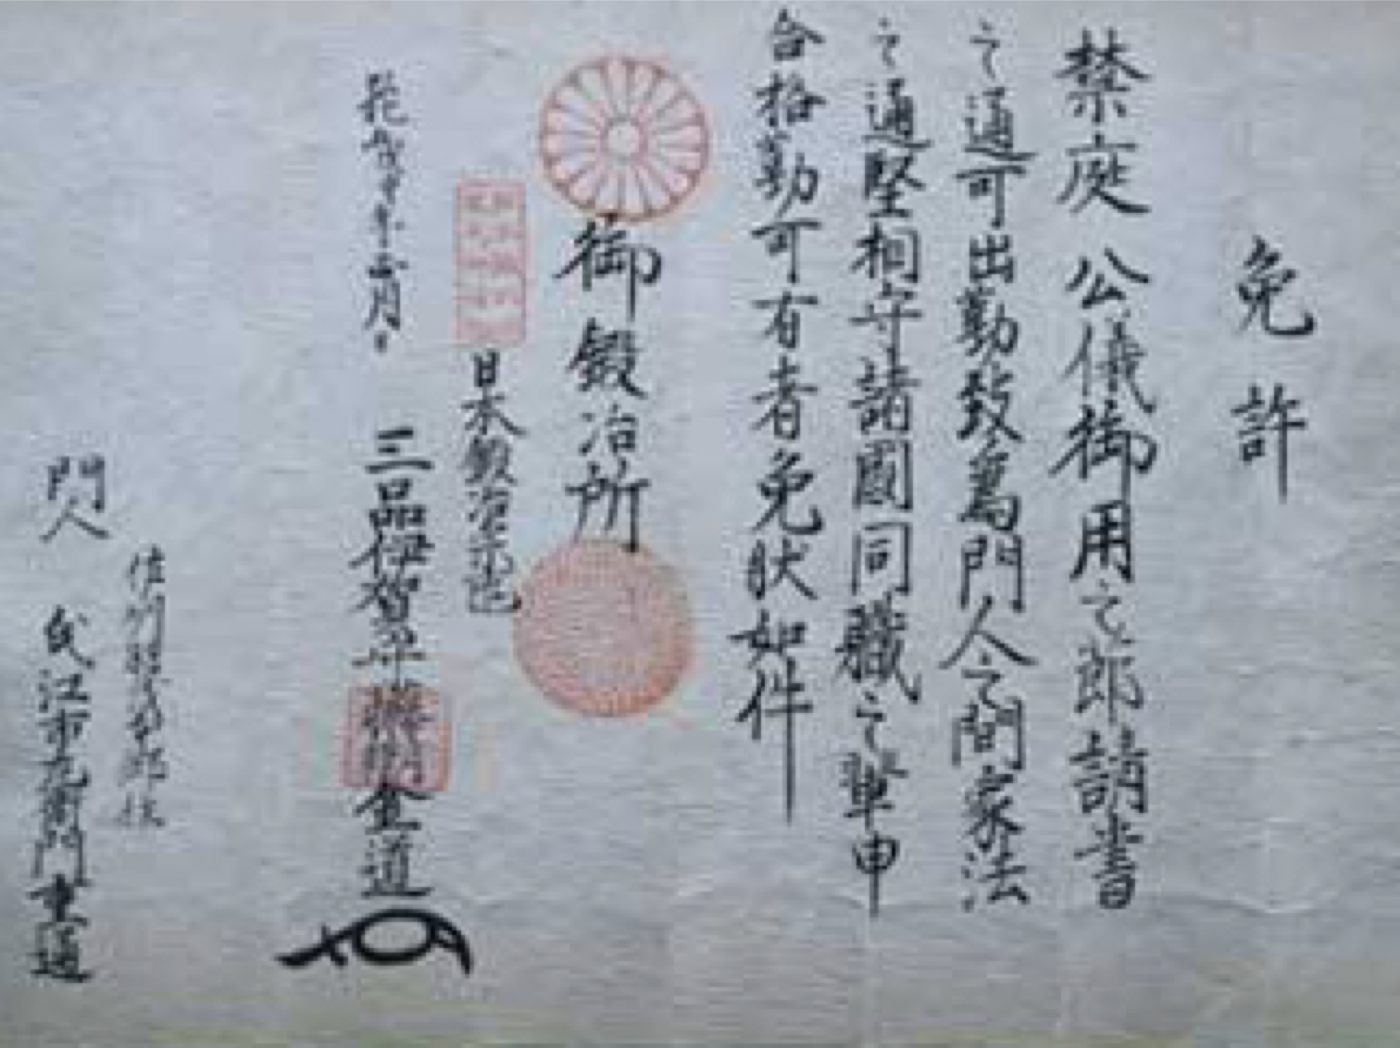 免許
禁庭 公儀御用之節請書
之通可出勤致為門人之間家法
之通堅相守諸國同職之輩申
合格勤可有者免状如件
御鍛冶所
日本鍛冶宗匠
正月
三品伊賀守藤原金道
門人
江市左衛門重道